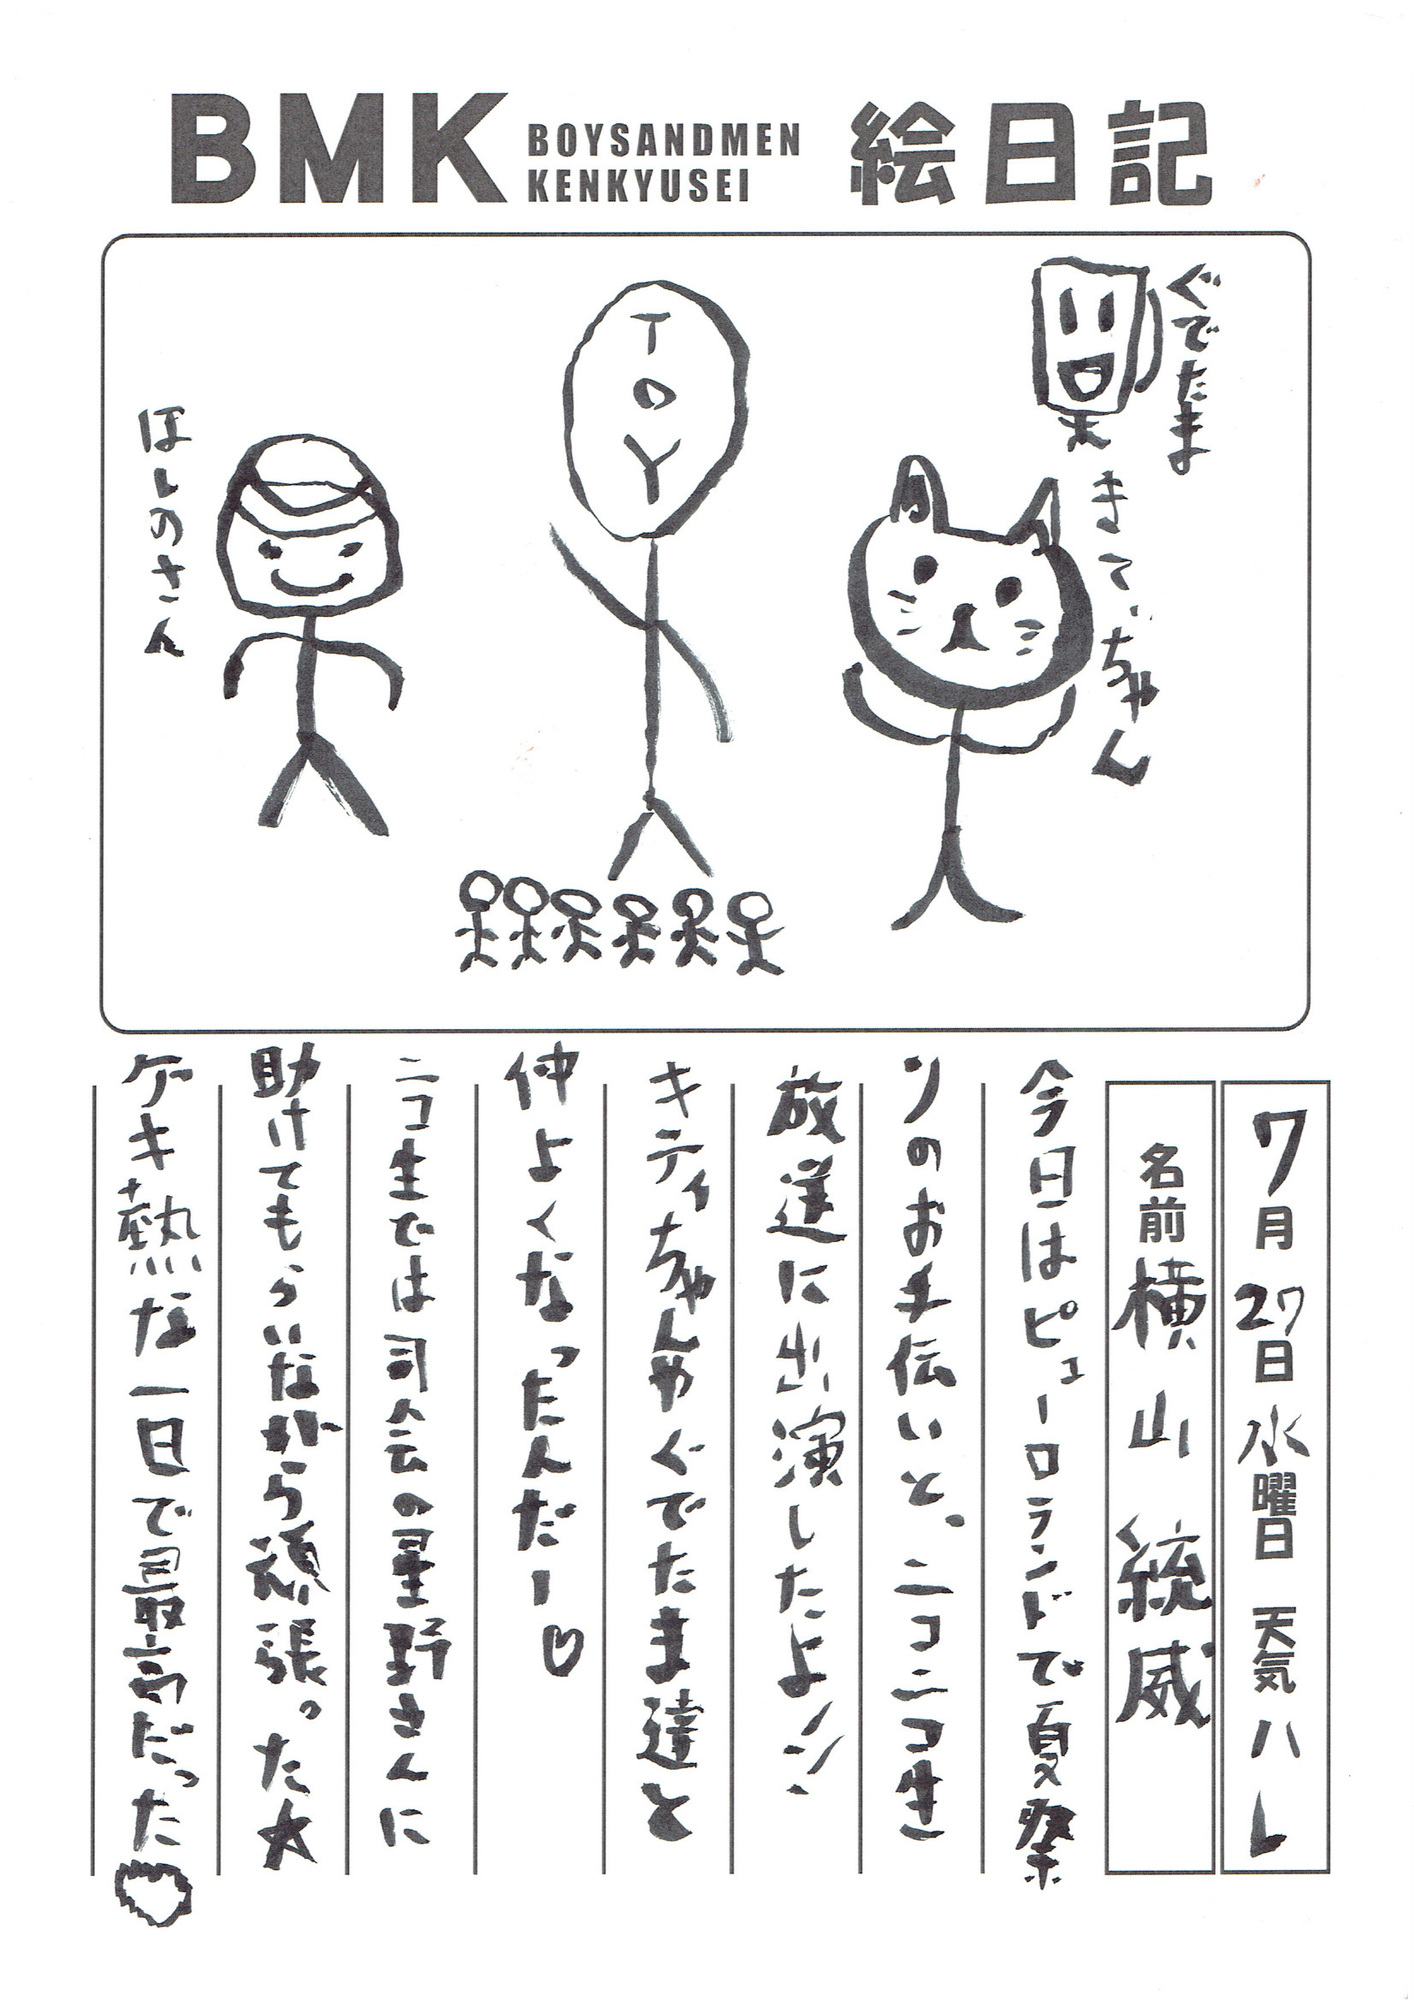 BMK BOYSANDMEN KENKYUSEI 絵日記
ぐでたま
きてぃちゃん
TOY
ほしのさん
7月27日水曜日 天気ハレ
名前 横山 統威
今日はピューロランドで夏祭
りのお手伝いと、ニコニコ生
放送に出演したよ
キティちゃんやぐでたま達と
仲よくなったんだー♡
ニコ生では司会の星野さんに
助けてもらいながら頑張った☆
ゲキ熱な一日で最高だった♡